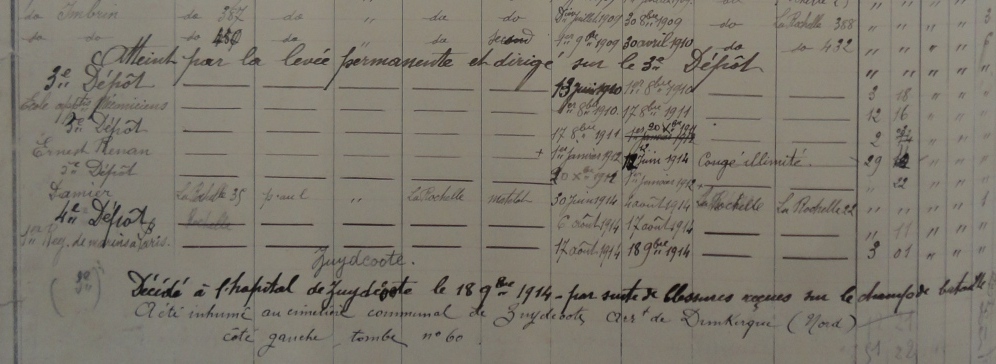 do Imbrin do 387 do " do do Dinr juillet 1909 30 8bre 1909 do La Rochelle 388
do do do 450 do " do second 1er 9bre 1909 30 avril 1910 do do 432
Atteint par la levée permanente et dirigé sur le 3e Dépôt
3e Dépôt 13 juin 1910 1er 8bre 1910 3 18 " "
École mécaniciens 1er 8bre 1910 17 8bre 1911 12 16 " "
5e Dépôt 17 8bre 1911 2 " "
Ernest Renan 1er janvier 1912 12 juin 1914 Congé illimité 29
5e Dépôt 20 Xbre 1911 1er janvier 1912 " 22 " "
Damier La Rochelle 35 pául " La Rochelle matelot 30 juin 1914 4 août 1914 La Rochelle La Rochelle 22
4e Dépôt 6 août 1914 17 août 1914 " 11 " "
1er Reg. de marins à Paris. 17 août 1914 18 9bre 1914 3 01 " "
Zuydcoote.
Décédé à l'hopital de Zuydcoote le 18 9bre 1914 - par suite de blessures reçues sur le champ de bataille
A été inhumé au cimetière communal de Zuydcoote, Arrt de Dunkerque (Nord)
côté gauche tombe no 60